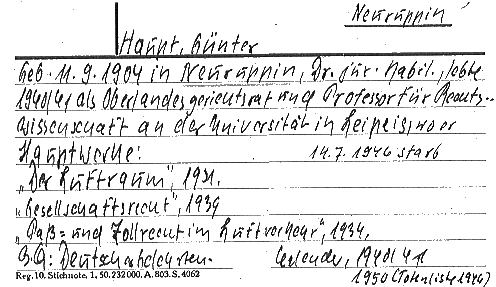 Neuruppin
Haupt, Günter
Geb. 11.9.1904 in Neuruppin, Dr. jur. habil., lebte
1940/41 als Oberlandesgerichtsrat und Professor für Rechts-
wissenschaft an der Universität in Leipzig, wo er
Hauptwerke: 14.7.1946 starb
„Der Luftraum", 1931.
„Gesellschaftsrecht", 1939
„Paß- und Zollrecht im Luftverkehr", 1934.
Deutscher 1940/41
Reg. 10. Stichnote. 1, 50. 232 000. A. 803. S. 4062
1950 (Totenliste 1946)